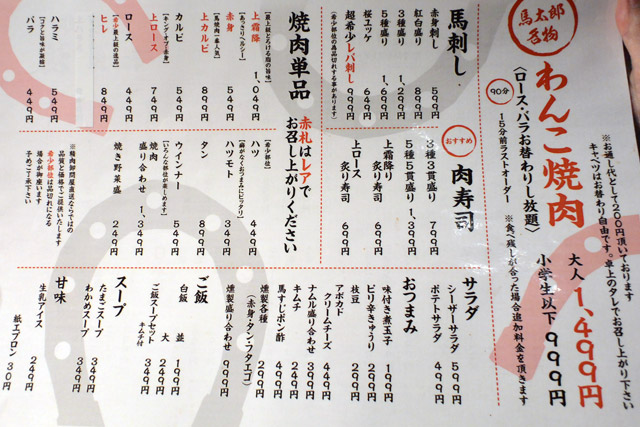 馬太郎
名物
わんこ焼肉
〈ロース・バラお替わりし放題〉
90分
15分前ラストオーダー
大人 1,499円
小学生以下 999円
※お通し代として200円頂いております
キャベツはお替わり自由です。卓上のタレでお召し上がり下さい
※食べ残しが合った場合追加料金を頂きます
馬刺し
赤身刺し 599円
紅白盛り 899円
3種盛り 1,299円
5種盛り 1,699円
桜ユッケ 649円
超希少レバ刺し 999円
おすすめ
肉寿司
3種3貫盛り 799円
5種5貫盛り 1,399円
上霜降り
炙り寿司 699円
上ロース
炙り寿司 699円
焼肉単品
赤札はレアで
お召し上がりください
上霜降 1,049円
赤身 549円
【あっさりヘルシー】
上カルビ 899円
【馬焼肉一番人気】
カルビ 549円
上ロース 749円
【キングオブ赤身】
ロース 449円
ヒレ 849円
【希少最上級の部位】
ハラミ 549円
バラ 449円
ハツ 449円
【希少部位】
ハツモト 349円
【癖がなくおつまみにピッタリ】
タン 899円
ウインナー 549円
【いろんな部位が楽しめます】
焼肉
盛り合わせ 1,349円
焼き野菜盛 249円
※精肉卸問屋直送ならではの
品質と価格でご提供いたします
希少部位は品切れになる
場合が御座います
予めご了承下さい
サラダ
シーザーサラダ 599円
ポテトサラダ 499円
おつまみ
味付き煮玉子 199円
ピリ辛きゅうり 299円
枝豆 299円
アボカド
クリームチーズ 449円
ナムル盛り合わせ 399円
キムチ 299円
馬すじポン酢 499円
燻製各種 299円
(赤身・タン・フタエゴ)
燻製盛り合わせ 999円
ご飯
白飯 並 199円
大 249円
ご飯スープセット 349円
キムチ付
スープ
たまごスープ 349円
わかめスープ 349円
甘味
生乳アイス 249円
紙エプロン 30円